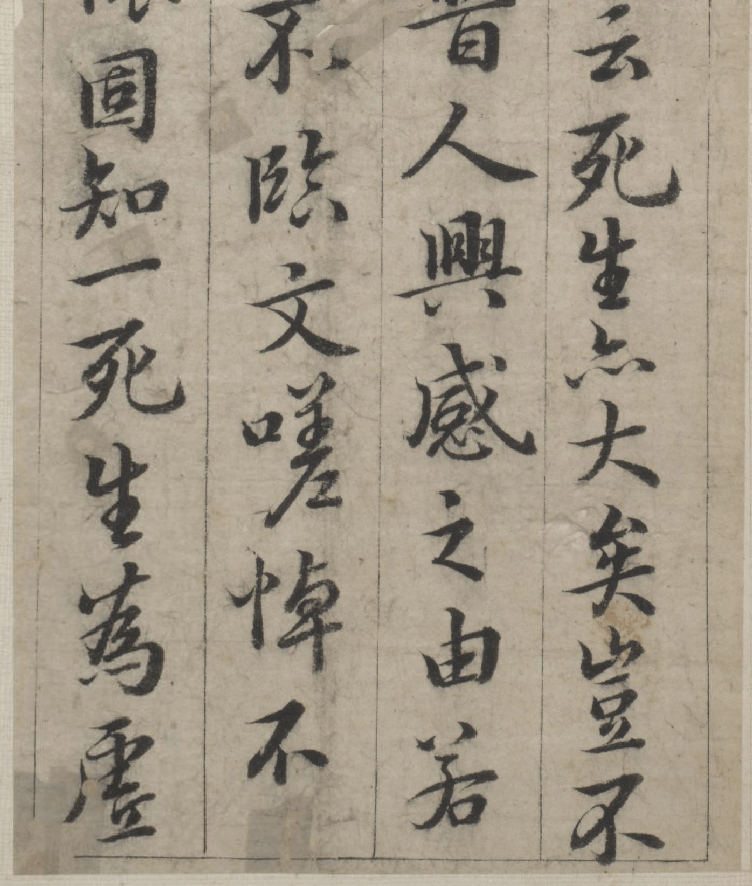 云死生亦大矣豈不
昔人興感之由若
不臨文嗟悼不
固知一死生為虛